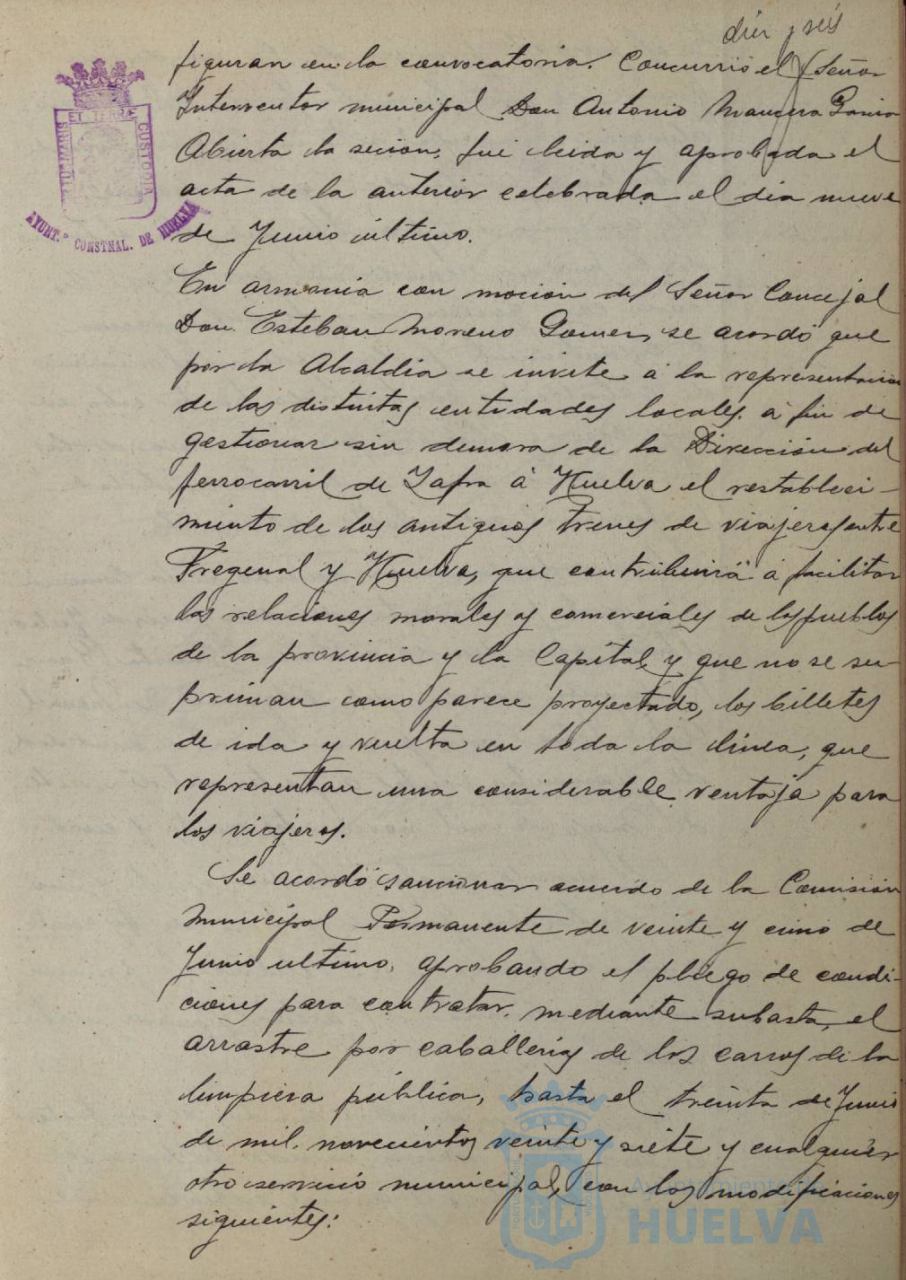 diez y seis
figuran en la convocatoria. Concurrió el Señor
Interventor municipal Don Antonio Mancera
Abierta la sesion, fué leida y aprobada el
acta de la anterior celebrada el dia nueve
de Junio último.
En armonia con moción del Señor Concejal
Don Esteban Moreno Gomez, se acordó que
por la Alcaldia se invite á la representacion
de las distintas entidades locales, a fin de
gestionar sin demora de la Dirección del
ferrocarril de Zafra á Huelva el restableci-
miento de los antiguos trenes de viajeros entre
Fregenal y Huelva, que contribuirá a facilitar
las relaciones morales y comerciales de los pueblos
de la provincia y la Capital, y que no se su
priman como parece proyectado, los billetes
de ida y vuelta en toda la linea, que
representan una considerable ventaja para
los viajeros.
Se acordó sancionar acuerdo de la Comisión
Municipal Permanente de veinte y cinco de
Junio ultimo, aprobando el pliego de condi-
ciones para contratar, mediante subasta, el
arrastre por caballerias de los carros de la
limpieza pública, hasta el treinta de Junio
de mil novecientos veinte y siete y cualquier
otro servicio municipal, con las modificaciones
siguientes:
ET TERRÆ CUSTODIA
AYUNT.º CONSTNAL. DE HUELVA
Ayuntamiento de
HUELVA